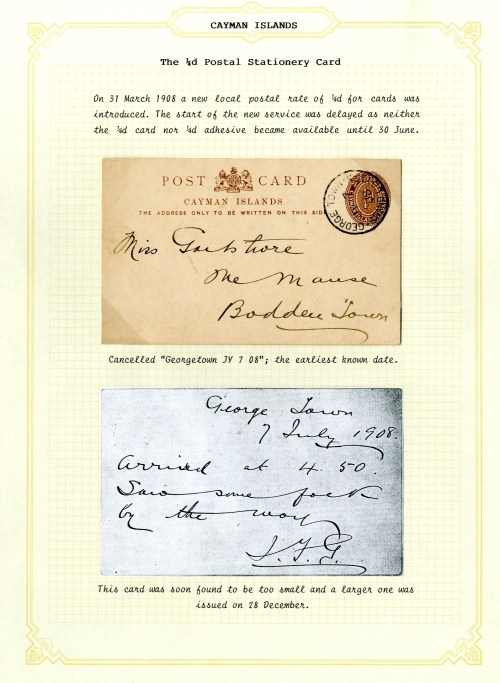 CAYMAN ISLANDS
The ¼d Postal Stationery Card
On 31 March 1908 a new local postal rate of ¼d for cards was
introduced. The start of the new service was delayed as neither
the ¼d card nor ¼d adhesive became available until 30 June.
POST CARD
CAYMAN ISLANDS
THE ADDRESS ONLY TO BE WRITTEN ON THIS SID
GEORGE TOWN
Miss
The Manse
Bodden Town
Cancelled "Georgetown JY 7 08"; the earliest known date.
George Town
7 July 1908.
Arrived at 4 50.
Saw some
by the way
This card was soon found to be too small and a larger one was
issued on 28 December.